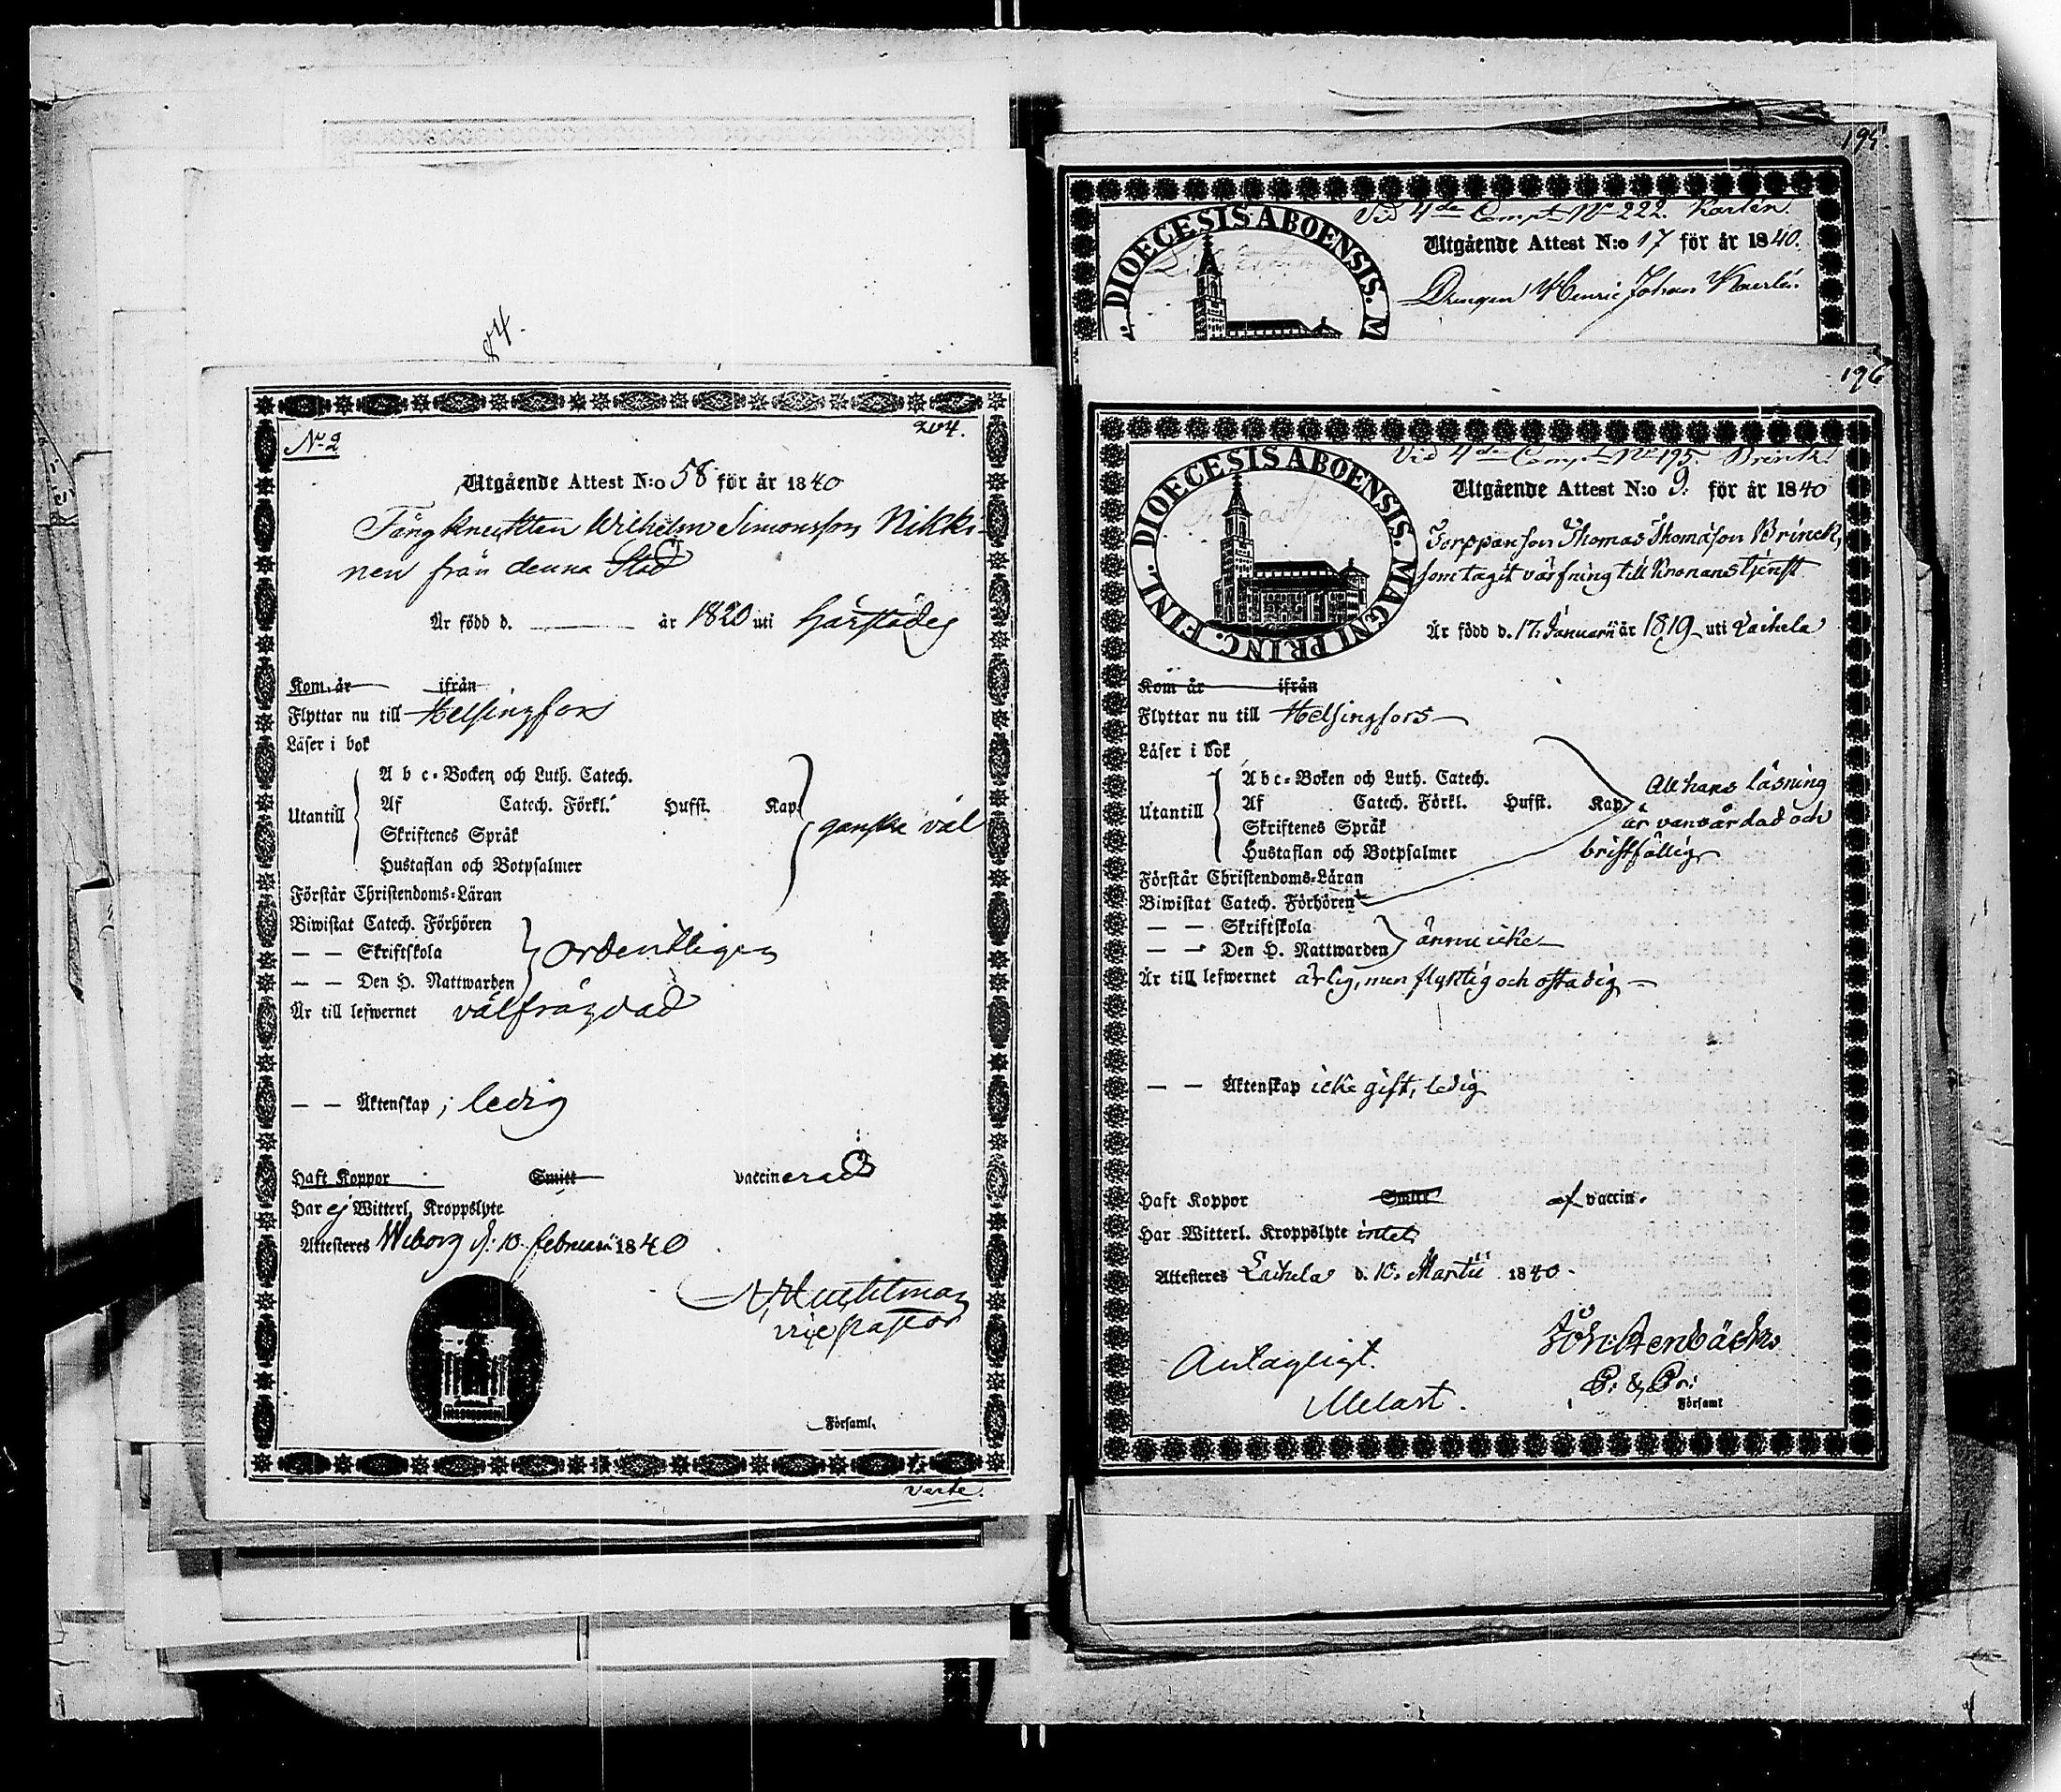 84.
No 2
204.
Utgående Attest N:o 58 för år 1840
Fångknekten Wilhelm Simonsson Nikki-
nen från denna Stad
Är född d. ——— år 1820 uti härstädes
Kom år ifrån
Flyttar nu till Helsingfors
Läser i bok
A b c-Bocken och Luth. Catech.
Utantill Af Catech. Förkl. Hufst. Kap. ganska väl
Skriftenes Språk
Hustaflan och Botpsalmer
Förstår Christendoms-Läran
Biwistat Catech. Förhören
— — Skriftskola ordentligen
— — Den H. Nattwarden
Är till lefwernet välfrägdad
— — Äktenskap; ledig
Haft Koppor Smitt vaccinerad
Har ej Witterl. Kroppslyte
Attesteras Wiborg d: 10 februarii 1840
vice pastor
Församl.
Verte.
195.
Vid 4de Comp. No 222. Karlén.
Utgående Attest N:o 17 för år 1840.
Drengen Henric Johan Kaerlén.
DIOECESIS ABOENSIS. M
196
Vid 4de Comp. No 195. Brinck.
Utgående Attest N:o 9. för år 1840
DIOECESIS ABOENSIS. MAGNI PRINC. FINL.
Torpparson Thomas Thomasson Brinck,
som tagit värfning till Kronans tjenst
Är född d. 17. Januarii år 1819 uti Laihela
Kom år ifrån
Flyttar nu till Helsingfors
Läser i bok
Abc-Boken och Luth. Catech. All hans läsning
Utantill Af Catech. Förkl. Hufst. Kap. är vanvårdad och
Skriftenes Språk
Hustaflan och Botpsalmer bristfällig
Förstår Christendoms-Läran
Biwistat Catech. Förhören
— — Skriftskola
— — Den H. Nattwarden ännu icke
Är till lefwernet ärlig, men flyktig och ostadig
— — Äktenskap icke gift, ledig
Haft Koppor Smitt af vaccin.
Har Witterl. Kroppslyte intet
Attesteras Laihela d. 10. Martii 1840.
Antagligt.
Melart.
Församl